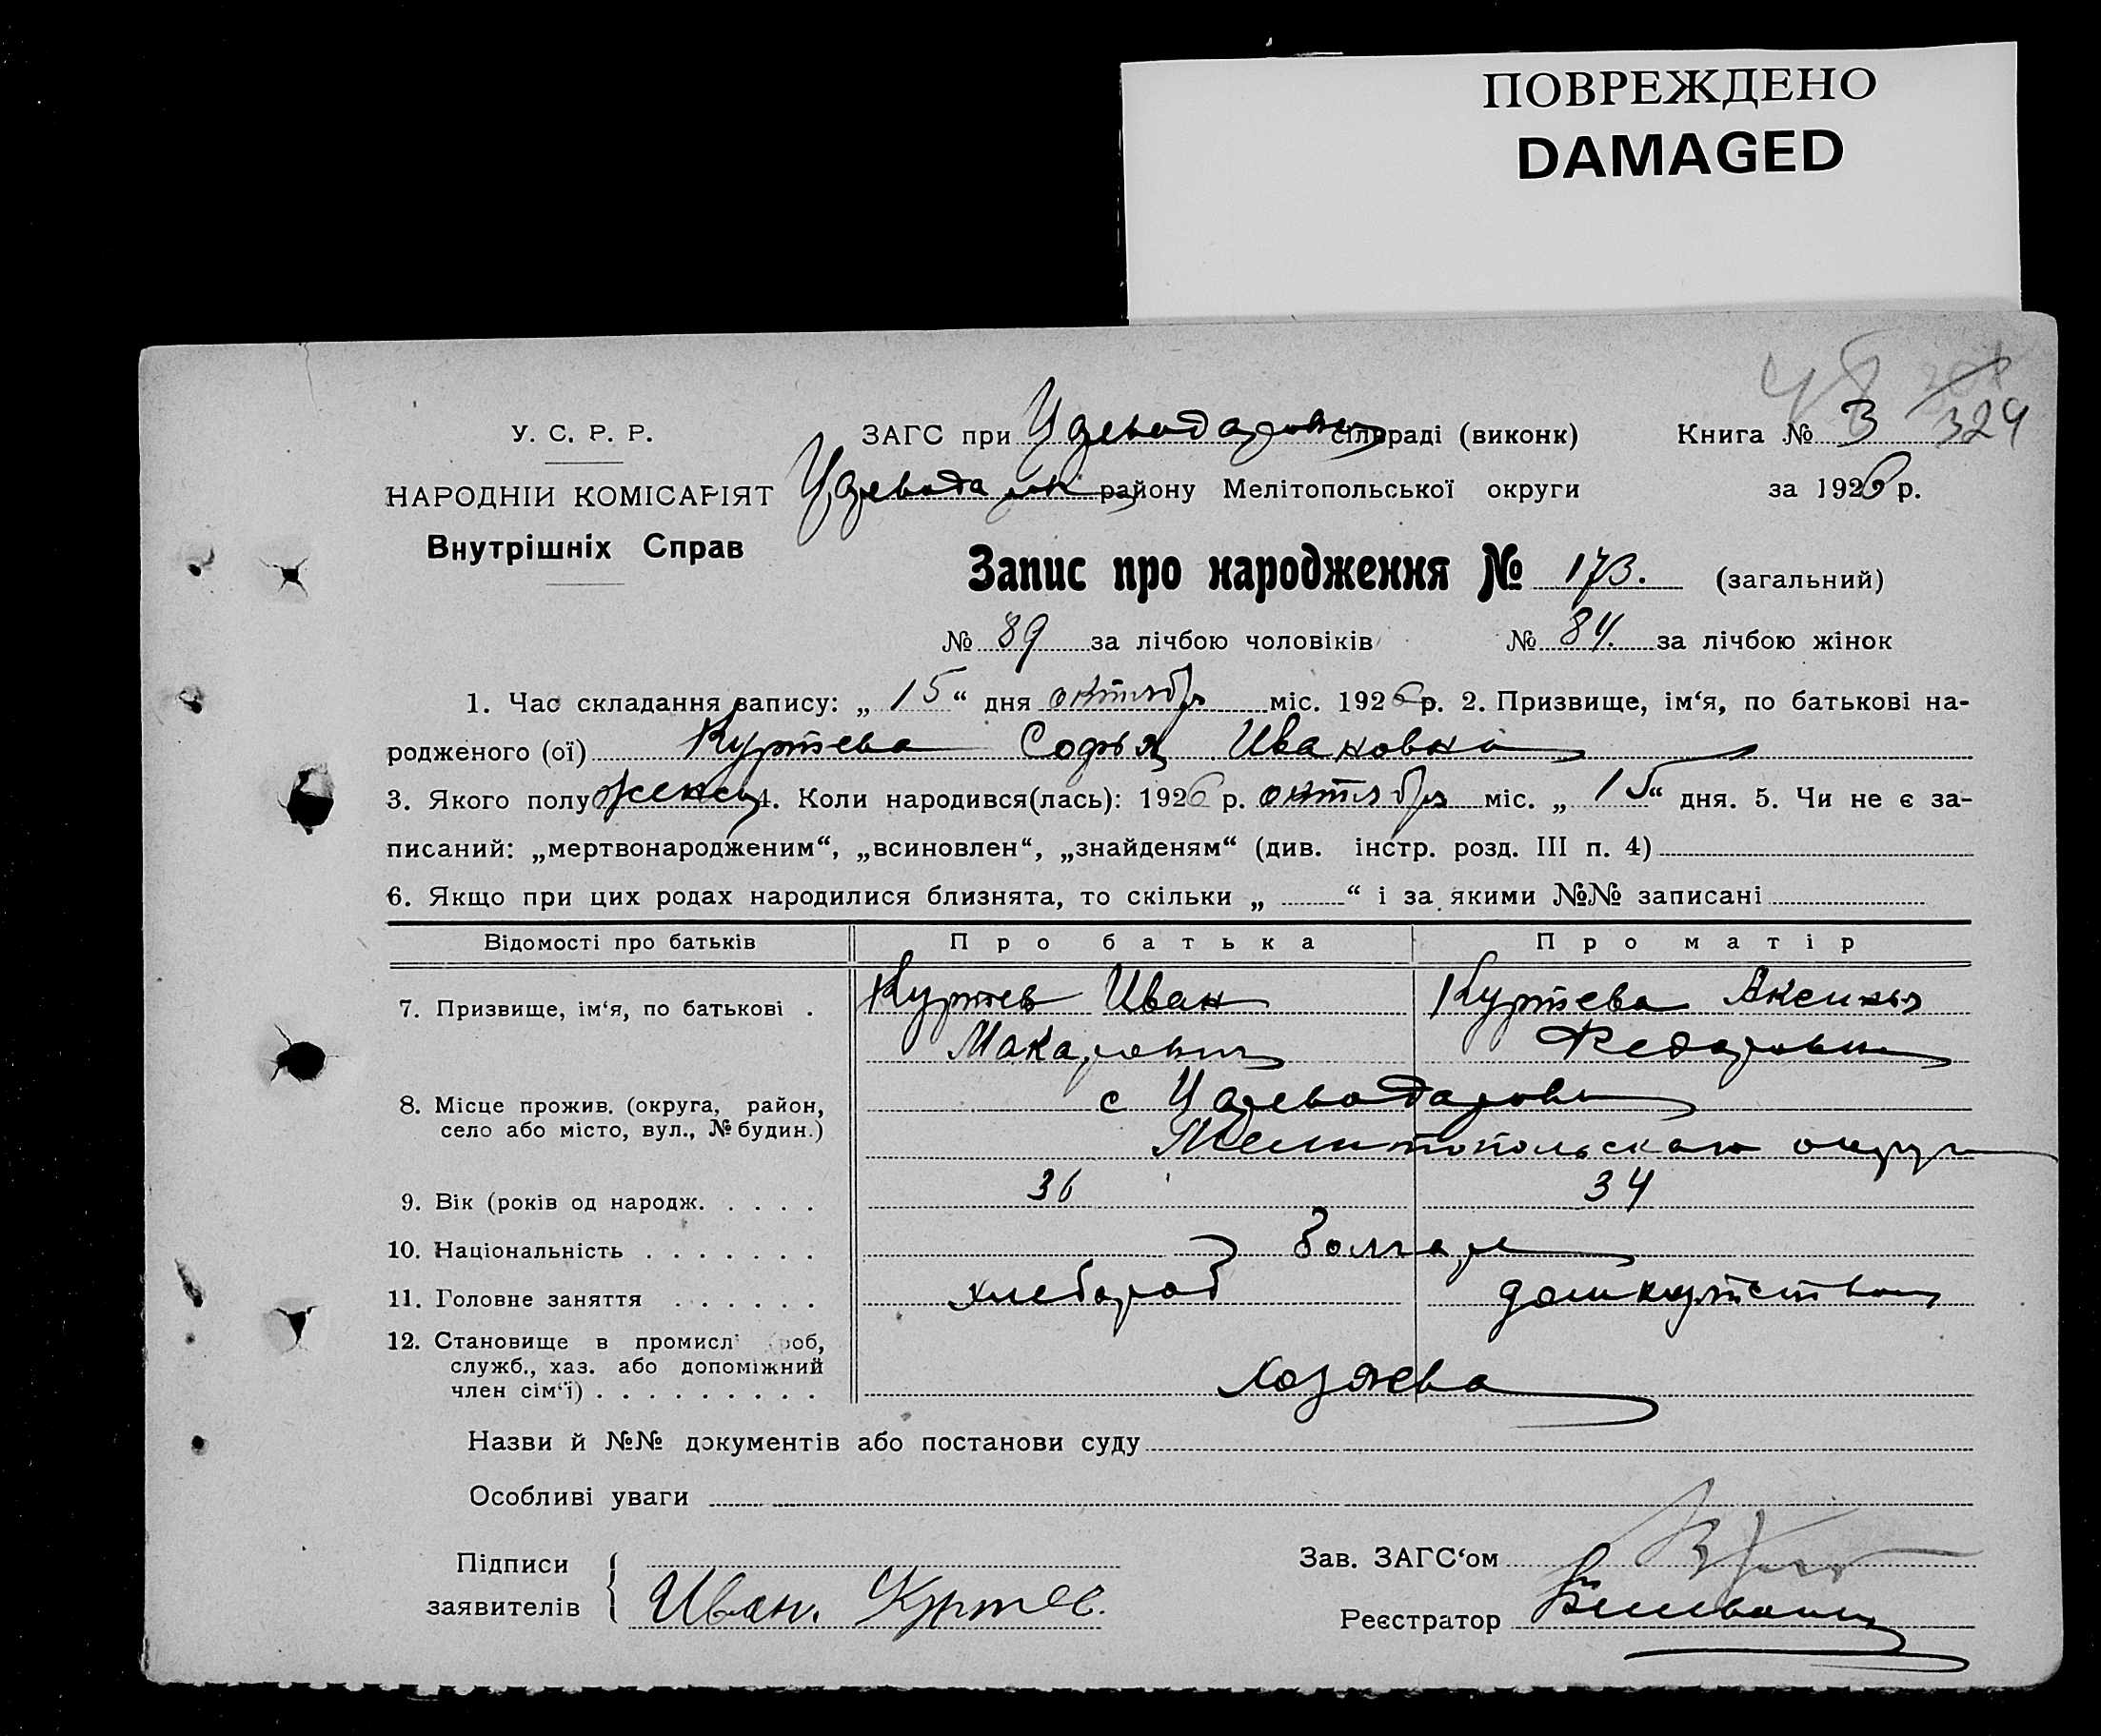 ПОВРЕЖДЕНО
DAMAGED
У. С. Р. Р.
ЗАГС при Цареводаровск сільраді (виконк)
Книга № 3 324
НАРОДНІИ КОМІСАРІЯТ
Цареводаровск району Мелітопольської округи
за 1926 р.
Внутрішніх Справ
Запис про народження № 173. (загальний)
№ 89 за лічбою чоловіків № 84. за лічбою жінок
1. Час складання запису: „ 15 “ дня октября міс. 1926 р. 2. Призвище, ім‘я, по батькові на-
родженого (ої) Куртева Софья Ивановна
3. Якого полу женск 4. Коли народився(лась): 1926 р. октября міс. „ 15 “ дня. 5. Чи не є за-
писаний: „мертвонародженим“, „всиновлен“, „знайденям“ (див. інстр. розд. III п. 4)
6. Якщо при цих родах народилися близнята, то скільки „ “ і за якими №№ записані
Відомості про батьків Про батька Про матір
7. Призвище, ім‘я, по батькові . Куртев Иван Куртева Аксинья
Макарович Федоровна
8. Місце прожив. (округа, район, с Цареводаровка
село або місто, вул., № будин.) Мелитопольского округа
9. Вік (років од народж. . . . . 36 34
10. Національність . . . . . . . болгаре
11. Головне заняття . . . . . . хлебороб домхозяйство
12. Становище в промисл роб,
служб., хаз. або допоміжний
член сім‘ї) . . . . . . . . . хозяева
Назви й №№ документів або постанови суду
Особливі уваги
Підписи
заявителів Иван. Куртев.
Зав. ЗАГС‘ом
Реєстратор